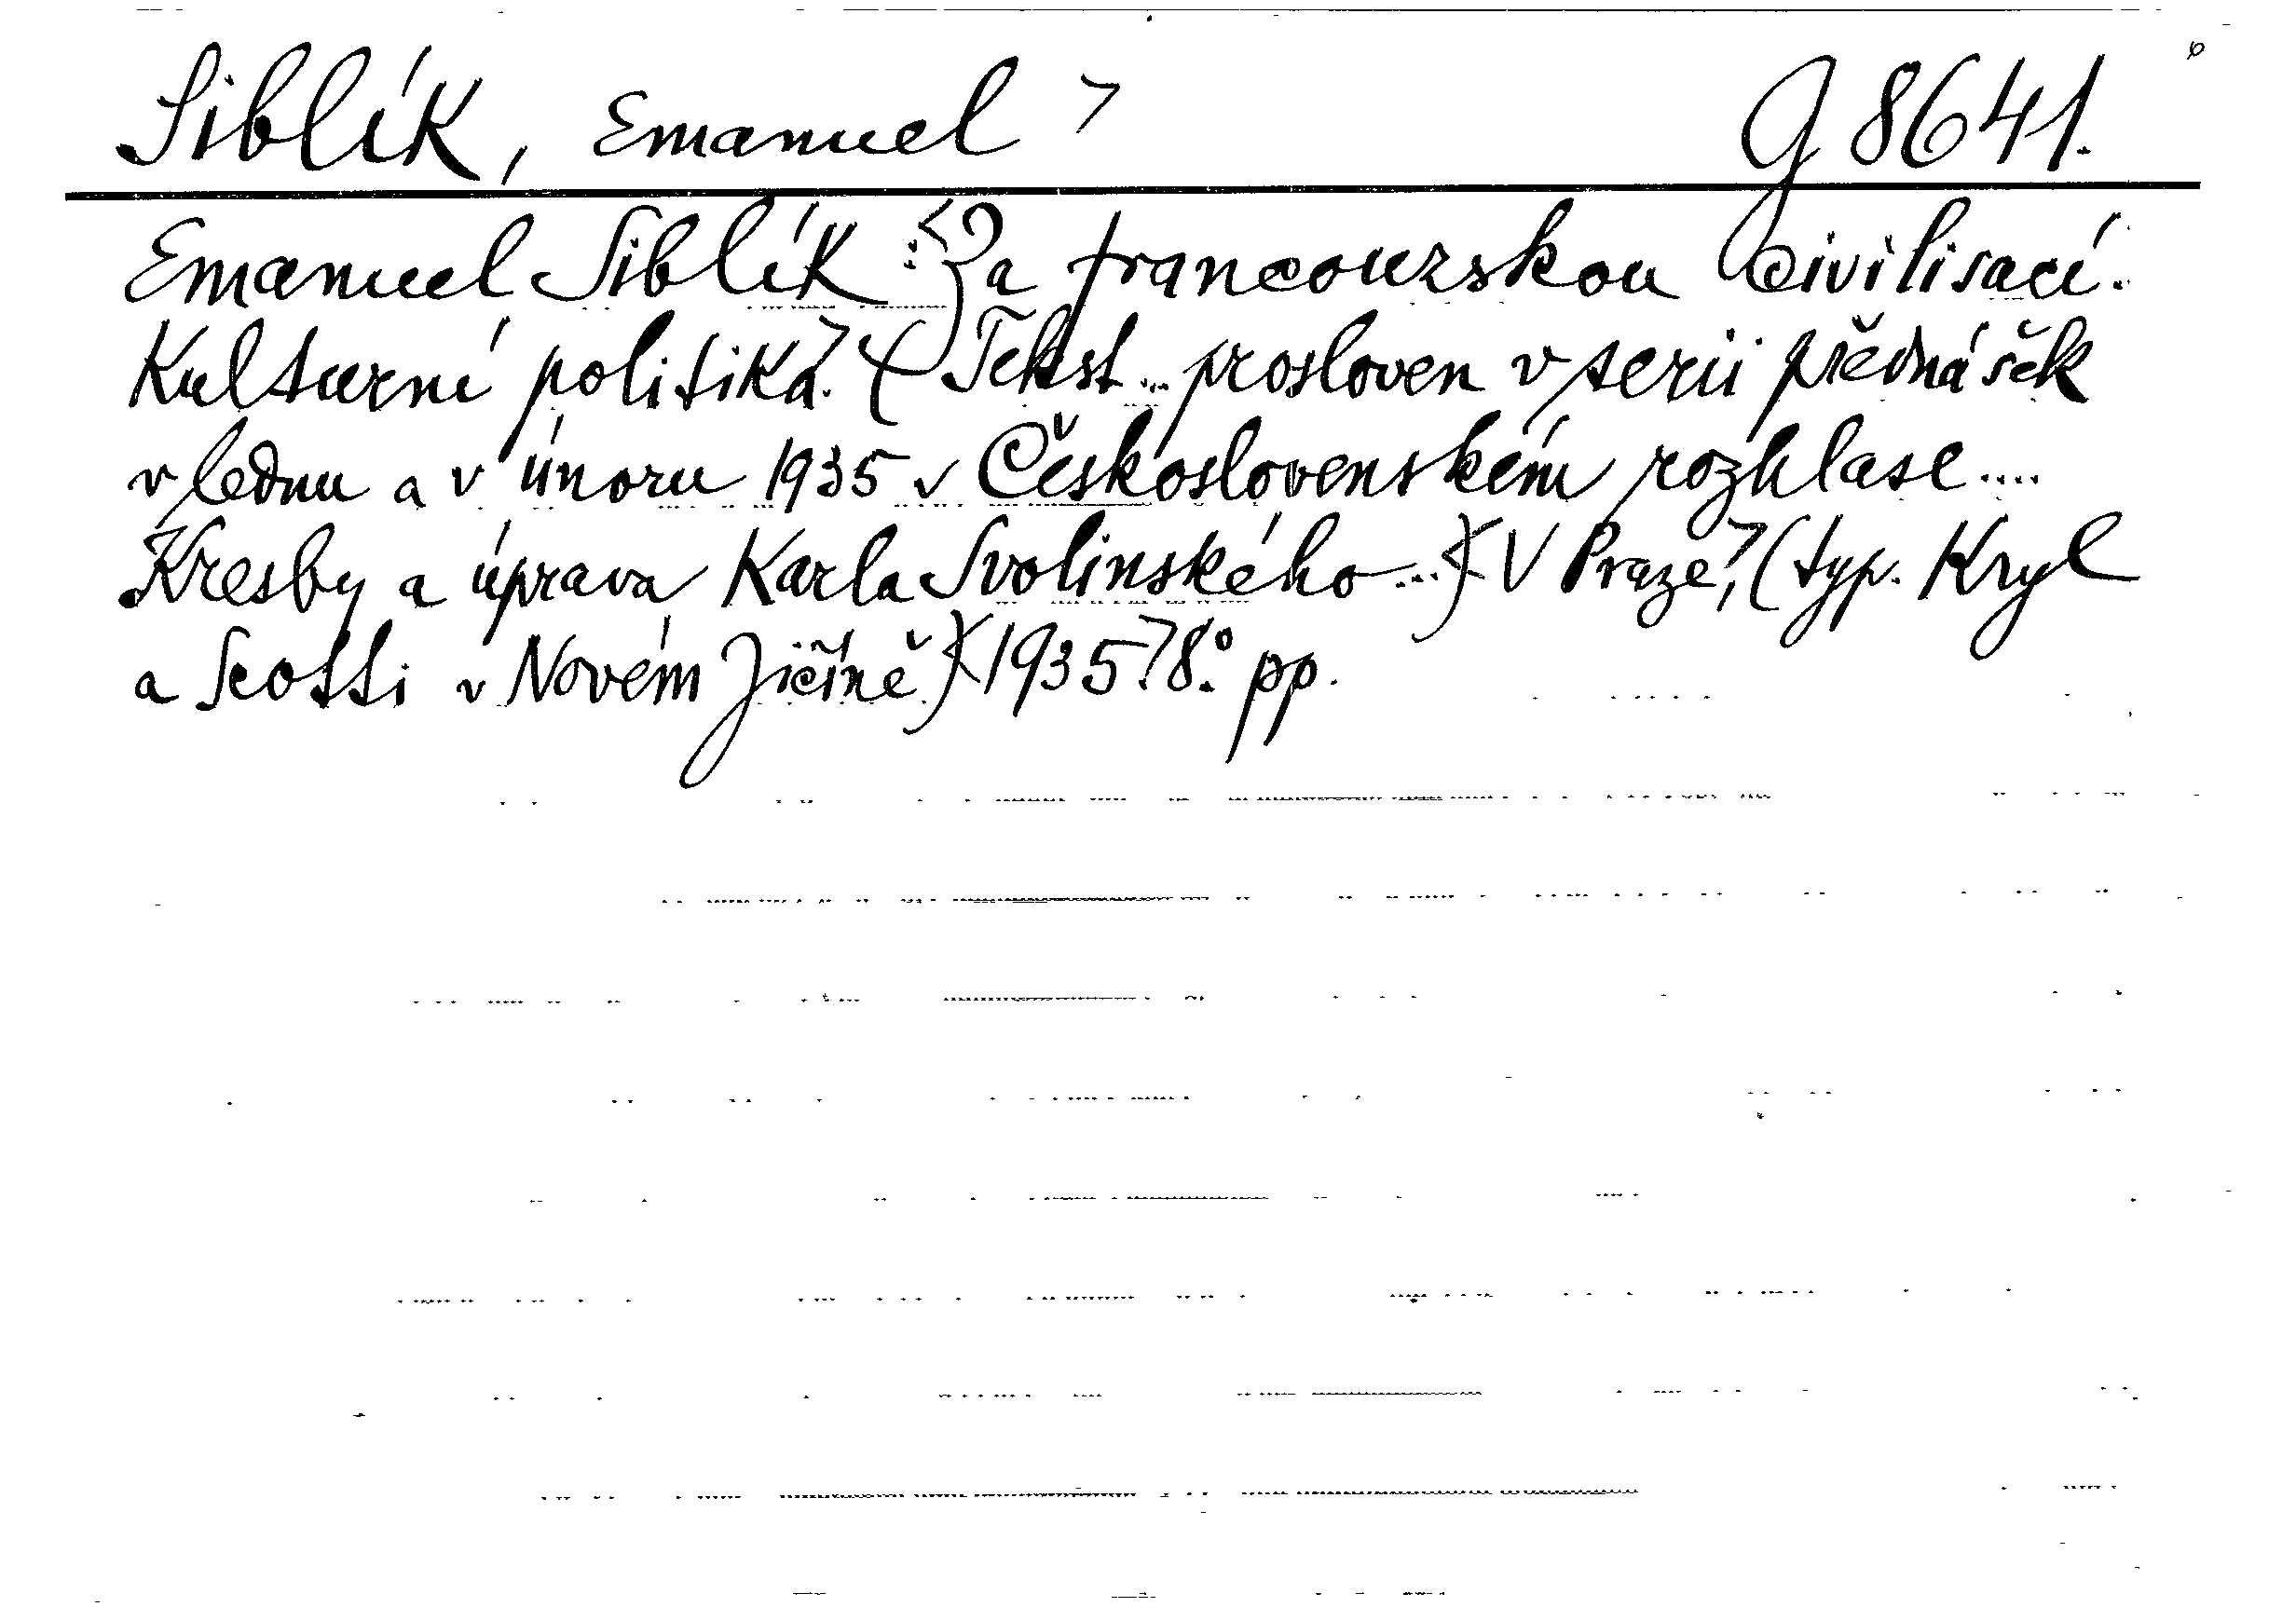 Siblík, Emanuel > G 8641.
Emanuel Siblík: <Za francouzskou civilisací.
Kulturní politika.> (Tekst... prosloven v serii přednášek
v lednu a v únoru 1935 v Československém rozhlase....
Kresby a úprava Karla Svolinského...) <V Praze,> (typ. Kryl
a Scotti v Novém Jičíně) <1935.> 8.° pp.